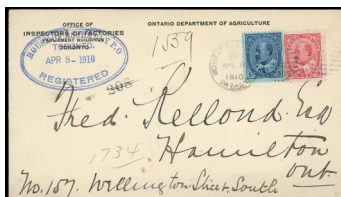 OFFICE OF
INSPECTORS OF FACTORIES
PARLIAMENT BUILDINGS
TORONTO.
ONTARIO DEPARTMENT OF AGRICULTURE
APR 8 - 1910
REGISTERED
1559
1910
ONTARIO
Fred. Kellond. Esq
Hamilton
1734
Ont.
No. 157. Wellington Street, South